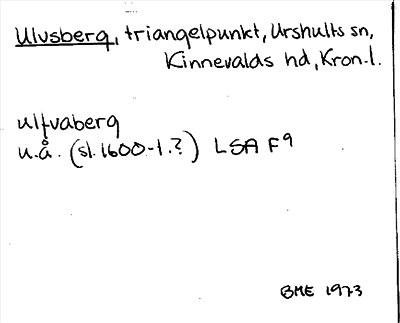 Ulvsberg, triangelpunkt, Urshults sn,
Kinnevalds hd, Kron.l.
ulfvaberg
u.å. (sl. 1600-t.?) LSA F9
BME 1973